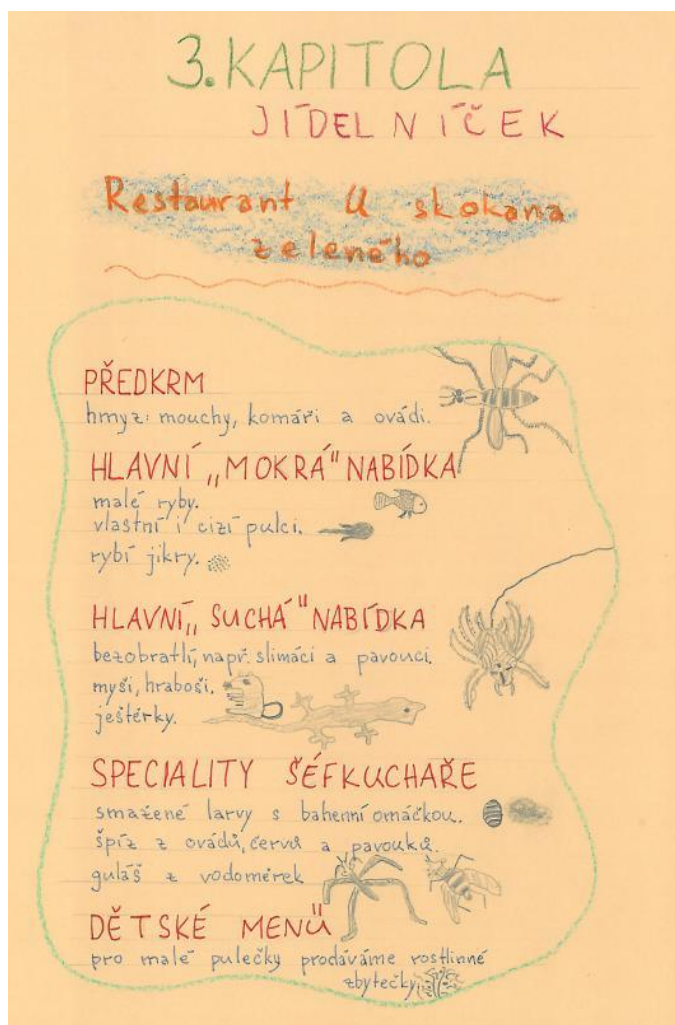 3. KAPITOLA
JÍDELNÍČEK
Restaurant U skokana
zeleného
PŘEDKRM
hmyz: mouchy, komáři a ovádi.
HLAVNÍ „MOKRÁ" NABÍDKA
malé ryby.
vlastní i cizí pulci.
rybí jikry.
HLAVNÍ „SUCHÁ" NABÍDKA
bezobratlí, např. slimáci a pavouci.
myši, hraboši.
ještěrky.
SPECIALITY ŠÉFKUCHAŘE
smažené larvy s bahenní omáčkou.
špíz z ovádů, červů a pavouků.
guláš z vodoměrek
DĚTSKÉ MENÜ
pro malé pulečky prodáváme rostlinné
zbytečky.